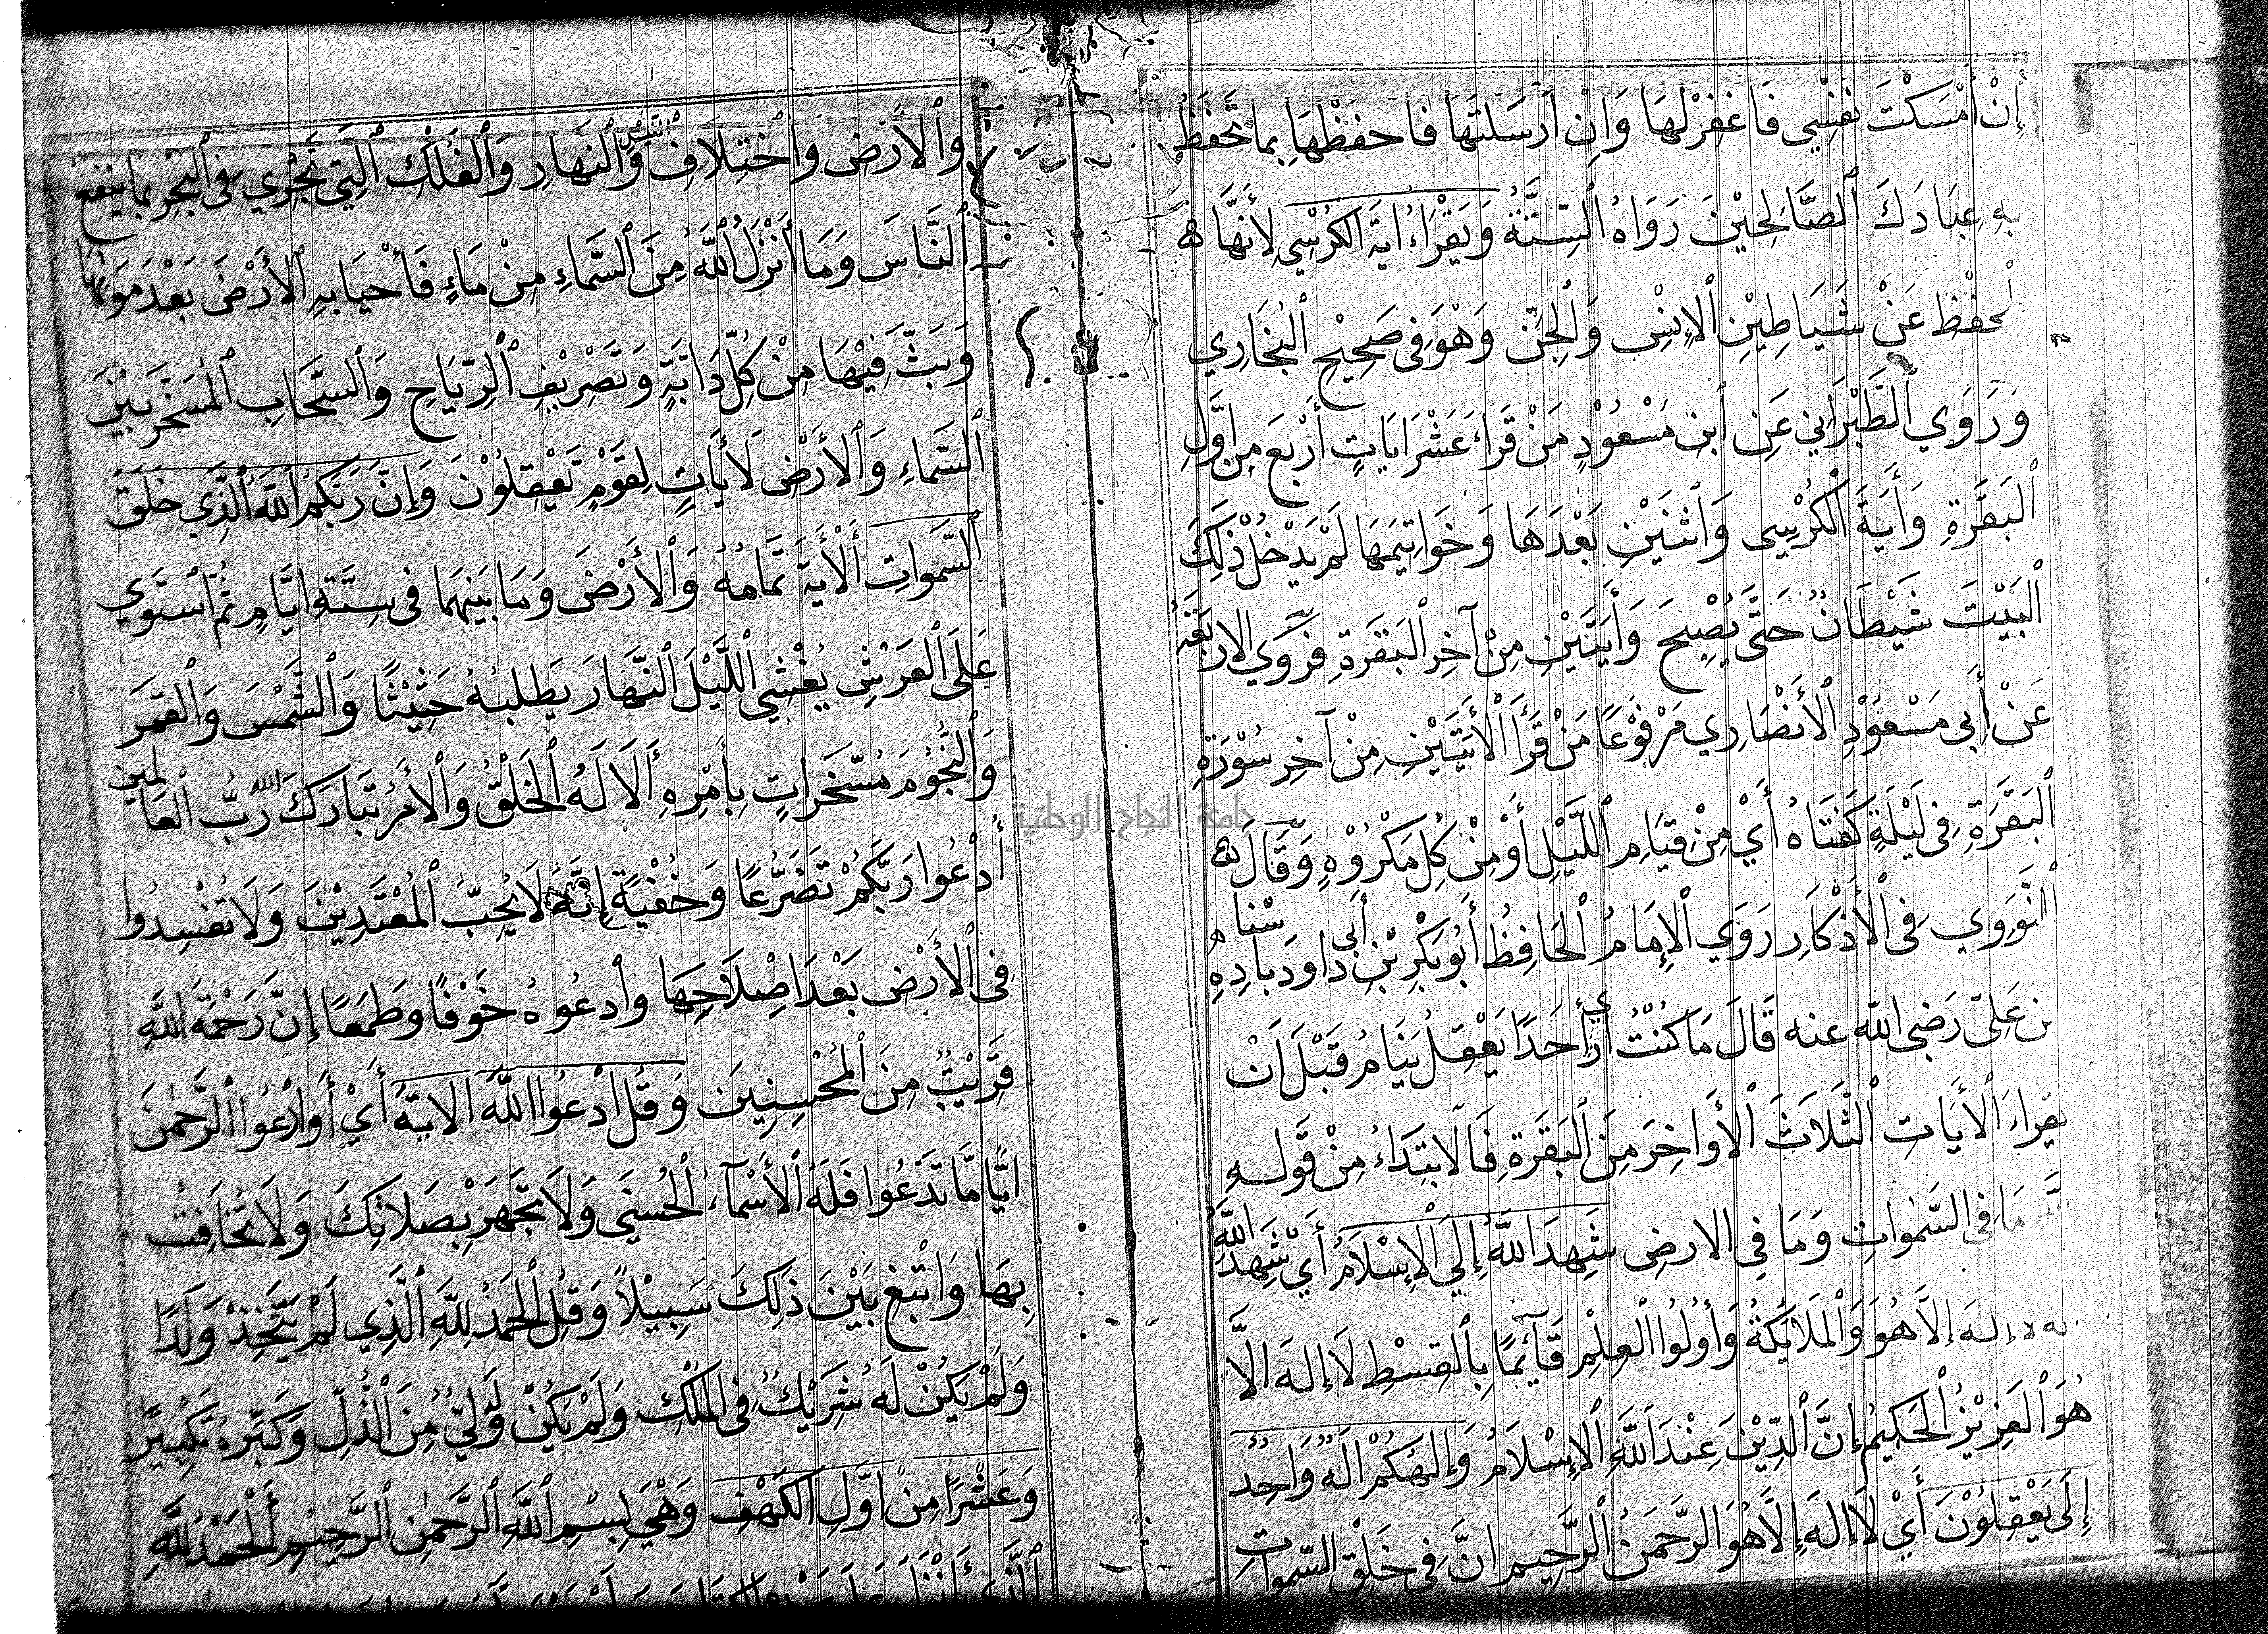 إِنْ أَمْسَكْتَ نَفْسِي فَاغْفِرْلَهَا وَإِنْ أَرْسَلْتَهَا فَاحْفَظْهَا بِمَا تَحْفَظُ
بِهِ عِبَادَكَ ٱلصَّالِحِيْنَ رَوَاهُ ٱلسِتَّةُ وَيَقْرَاءُ ايَةَ الكُرْسِي لِأَنَّهَا
لحفْظ عَنْ شَيَاطِيْنِ ٱلإِنْسِ وَٱلْجِنِّ وَهْوَ فِى صَحِيْحِ ٱلْبُخَارِي
وَرَوَي ٱلطَّبْرَانِي عَنِ ٱبن مَسْعُوْدٍ مَنْ قَرَاءَ عَشْرَ ايَاتٍ أَرْبَعَ مِن اوَّلِ
ٱلبَقَرَةِ وَأَيَةَ ٱلْكُرْسِي وَاثنَيْنِ بَعْدَهَا وَخَوَاتِيمَهَا لَمْ يَدْخُلْ ذَلِكَ
ٱلبَيْتَ شَيْطَانٌ حَتَّى يُصْبِحَ وَأَيَتَيْنِ مِنْ آخِرِ ٱلبَقَرَةِ فَرَوَي الاربَعَةُ
عَنْ أَبِي مَسْعُوْدٍ ٱلأَنْصَارِي مَرْفُوْعًا مَنْ قَرَأَ ٱلْأَيَتَيْنِ مِنْ آخِرِ سُوْرَةِ
ٱلبَقَرَةِ فِى لَيْلَةٍ كَفَتَاهُ أَيْ مِنْ قيَامِ ٱللَّيْلِ أَوْ مِنْ كُلِ مَكْرُوْهٍ وَقَالَ
ٱلنَّوَوِي فِى ٱلْأَذْكَارِ رَوَي ٱلإِمَامُ ٱلحَافِظُ أَبُوبَكْرِ بْنِ أَبي دَاودَ باسْنادِهِ
عَلِيّ رَضِى اللّه عنه قَالَ مَا كُنْتُ أرَي أَحَدًا يَعْقِل يَنَامُ قَبْلَ اَنْ
يقراءَ ٱلأَيَاتِ ٱلثَّلَاثَ ٱلأَوَاخِرَ مِنَ ٱلبَقَرَةِ فَالابتِدَاءُ مِنْ قَوله
مَا فِى السَّمٰواتِ وَمَا فِي الارضِ شَهِدَ اللَّهُ إِلَي ٱلْإِسْلَامُ أَيْ شَهِدَ اللَّهُ
إلهَ إِلاَّ هُوَ وَٱلمَلَائِكَةُ وَأُولُوا ٱلعِلْمِ قَآئِمًا بِالقِسْطِ لَا إِلهَ الاَّ
هُوَ ٱلعَزِيْزُ ٱلحَكِيمُ إِنَّ ٱلدِّيْنَ عِنْدَ ٱللَّهِ ٱلإِسْلَامُ وَإِلهُكُمْ الَهٌ وَاحِدٌ
إِلَى يَعْقِلُوْنَ أَيْ لَا إِلهَ إِلَّا هُوَ الرَّحمَنُ ٱلرَّحِيم انَّ فِى خَلْقِ السّموَاتِ
وَٱلأَرْضِ وَٱخْتِلَافِ ٱلَّيْلِ وَٱلنَهَارِ وَٱلْفُلْكِ ٱلَّتِي تَجْرِي فِى ٱلْبَحْرِ بِمَا يَنْفَعُ
ٱلنَّاسَ وَمَا أَنْزَلَ ٱللَّهُ مِنَ ٱلسَّمَاءِ مِنْ مَاءٍ فَأَحْيَابِهِ ٱلأَرْضَ بَعْدَ مَوْتِهَا
وَبَثَّ فِيْهَا مِنْ كُلِّ دَابَّةٍ وَتَصْرِيْفِ ٱلرِّيَاحِ وَٱلسَّحَابِ ٱلمُسَخَّرِ بَيْنَ
ٱلسَّمَاءِ وَٱلأَرْضِ لَأَيَاتٍ لِقَوْمٍ يَعْقِلُوْنَ وَإِنَّ رَبَكُمُ اللَّهُ ٱلَّذِي خلَقَ
ٱلسَّموَاتِ ٱلْأَيةَ تَمَامُهُ وَٱلأَرْضَ وَمَا بَيْنَهمَا فِى سِتَّةِ ايَّامٍ ثُمَّ ٱسْتَوَي
عَلَى ٱلعَرْشِ يُغْشِي ٱللَّيْلَ ٱلنَّهَارَ يَطلبُهُ حَثِيْثًا وَٱلشَّمْسَ وَٱلقمَرَ
وَٱلنُّجُوْمَ مُسَّخَرَاتٍ بِأَمْرِهِ أَلَا لَهُ ٱلخَلْقُ وَٱلأَمْرُ تَبَارَكَ اللهُ رَبُّ ٱلعَالمين
أُدْعُوا رَبَّكُمْ تَضَرُّعًا وَخُفْيَةً إِنَّهُ لَا يُحِبُّ ٱلمُعْتَدِيْنَ وَلَا تُفْسِدُوا
فِى ٱلأَرْضِ بَعْدَ اصْلَاحِهَا وَٱدعُوهُ خَوْفًا وَطَمَعًا إِنَّ رَحْمَةَ اللَّهِ
قَرِيْبٌ مِنَ ٱلمُحْسِنِينَ وَقُل ادْعُوا اللَّهَ الايَةَ أَيْ أَوادْعُوا ٱلرَّحمٰنَ
ايًّامَّا تَدْعُوا فَلَهُ ٱلأَسْمآءُ ٱلحُسْنَي وَلَا تَجْهَرْ بِصَلَاتِكَ وَلَا تُخَافِتْ
بِهَا وَابْتَغِ بَيْنَ ذَلِكَ سَبِيْلاً وَقُلِ ٱلحَمْدُ لِلَّهِ ٱلَّذِي لَمْ يَتَّخِذْ وَلَدًا
وَلَمْ يَكُنْ لَهُ شَرِيْكٌ فِى ٱلمُلْكِ وَلَمْ يَكُنْ لَهُ وَلِيٌّ مِنَ ٱلذُّلِ وَكَبِّرهُ تَكْبِيْرًا
وَعَشْرًا مِنْ اوَّلِ ٱلكَهْفِ وَهْيَ بِسْمِ ٱللَّهِ ٱلرَّحمٰنِ ٱلرَّحِيْمِ أَلْحَمْدُ لِلَّهِ
ٱلَّذِي أَنْزَلَ عَلَى عَبْدِهِ الكِتَابَ
جامعة النجاح الوطنية